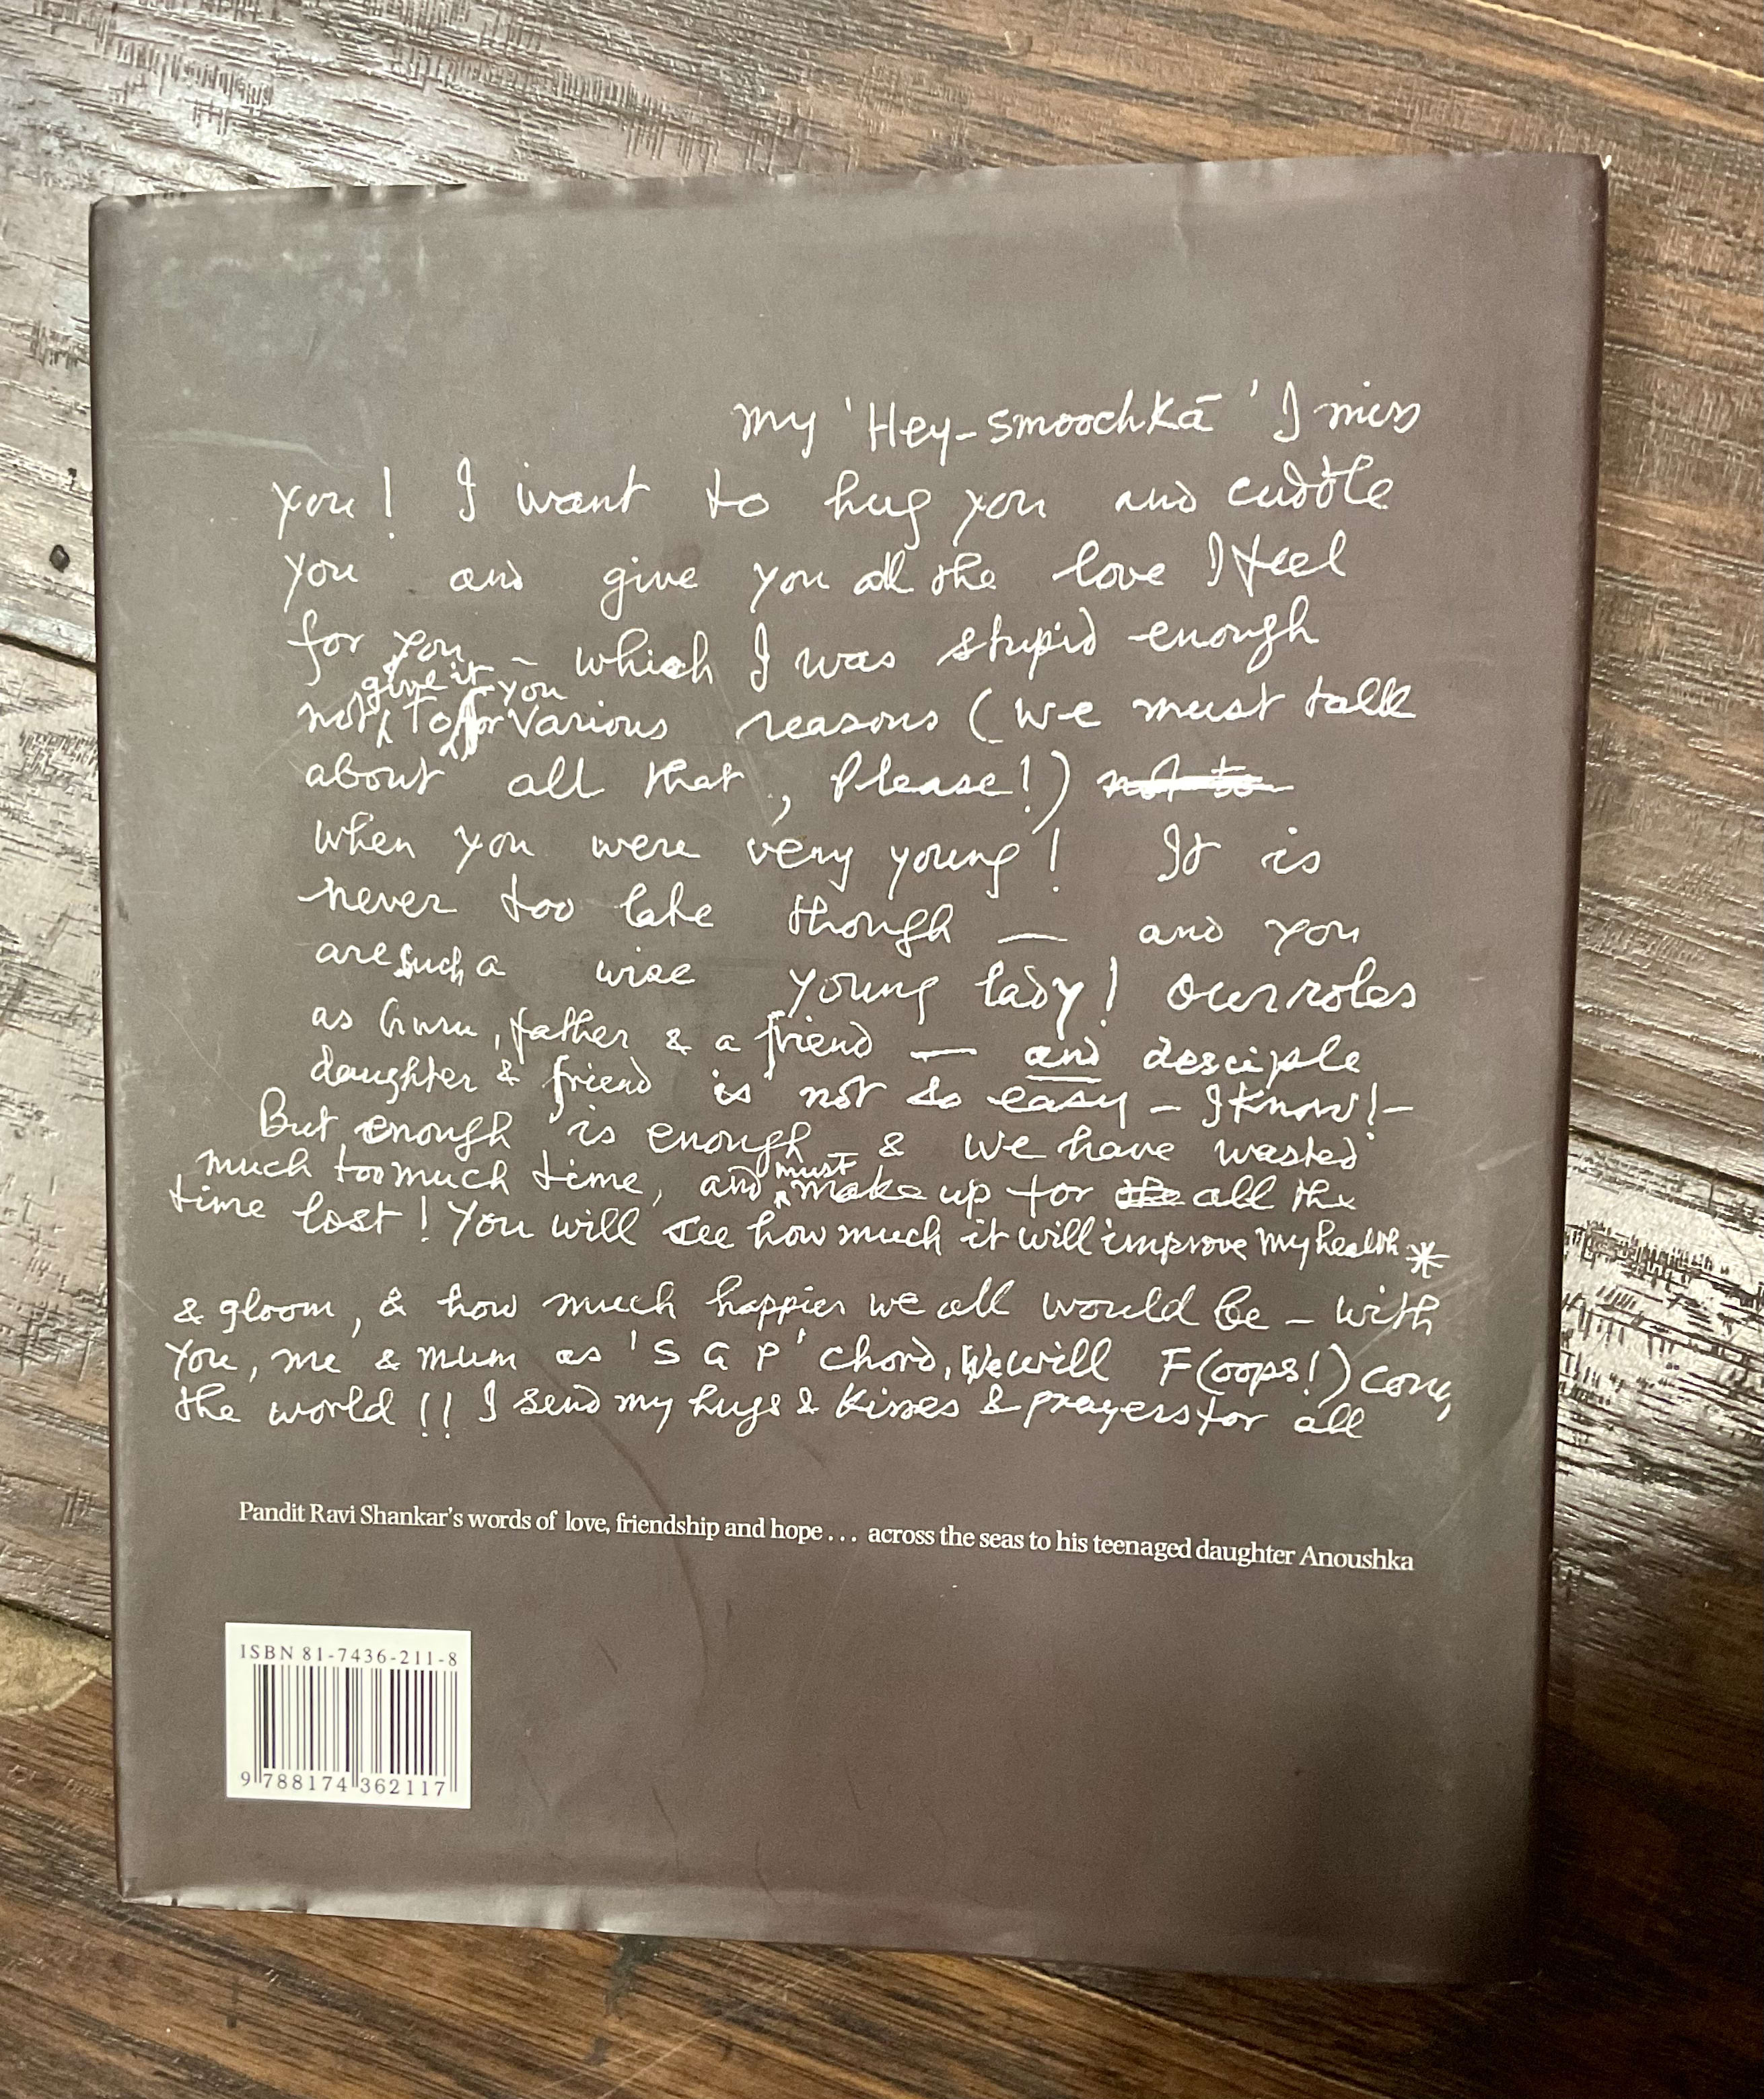 my 'Hey-smoochkā' I miss
you! I want to hug you and cuddle
you and give you all the love I feel
for you – which I was stupid enough
give it you
not to for various reasons (we must talk
about all that, Please!) not to
when you were very young! It is
never too late though — and you
are such a wise young lady! Our roles
as Guru, father & a friend — and desciple
daughter & friend is not so easy – I know! –
But enough is enough – & we have wasted
much too much time, and must make up for the all the
time lost! You will see how much it will improve my health *
& gloom, & how much happier we all would be – with
you, me & mum as 'S G P' chord, We will F(oops!) conq
the world!! I send my hugs & kisses & prayers for all
Pandit Ravi Shankar's words of love, friendship and hope . . . across the seas to his teenaged daughter Anoushka
ISBN 81-7436-211-8
9 788174 362117